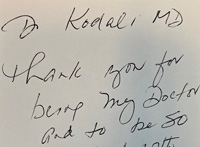 Dr Kodali MD
Thank you for
being my Doctor
and to be so